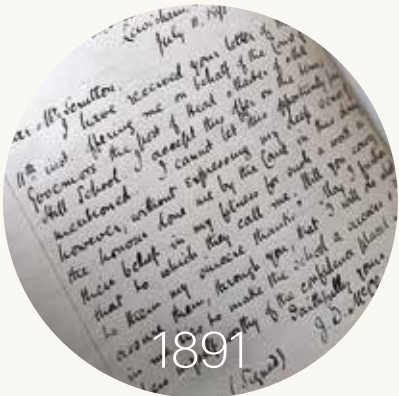 Lewisham
July 11. 1891
Mr. Scrutton.
I have received your letter of
11th inst. offering me on behalf of the Court of
Governors the post of Head Master of
Hill School. I accept this offer on the terms
mentioned. I cannot let this opportunity
however, without expressing my deep
the honour done me by the Court in
their belief in my fitness for such a
that to which they call me. Will you
to them my sincere thanks. May I
assure them, through you, that I will do
in me to make the school a success
myself worthy of the confidence placed
Faithfully yours
(Signed) J. D. McC
1891